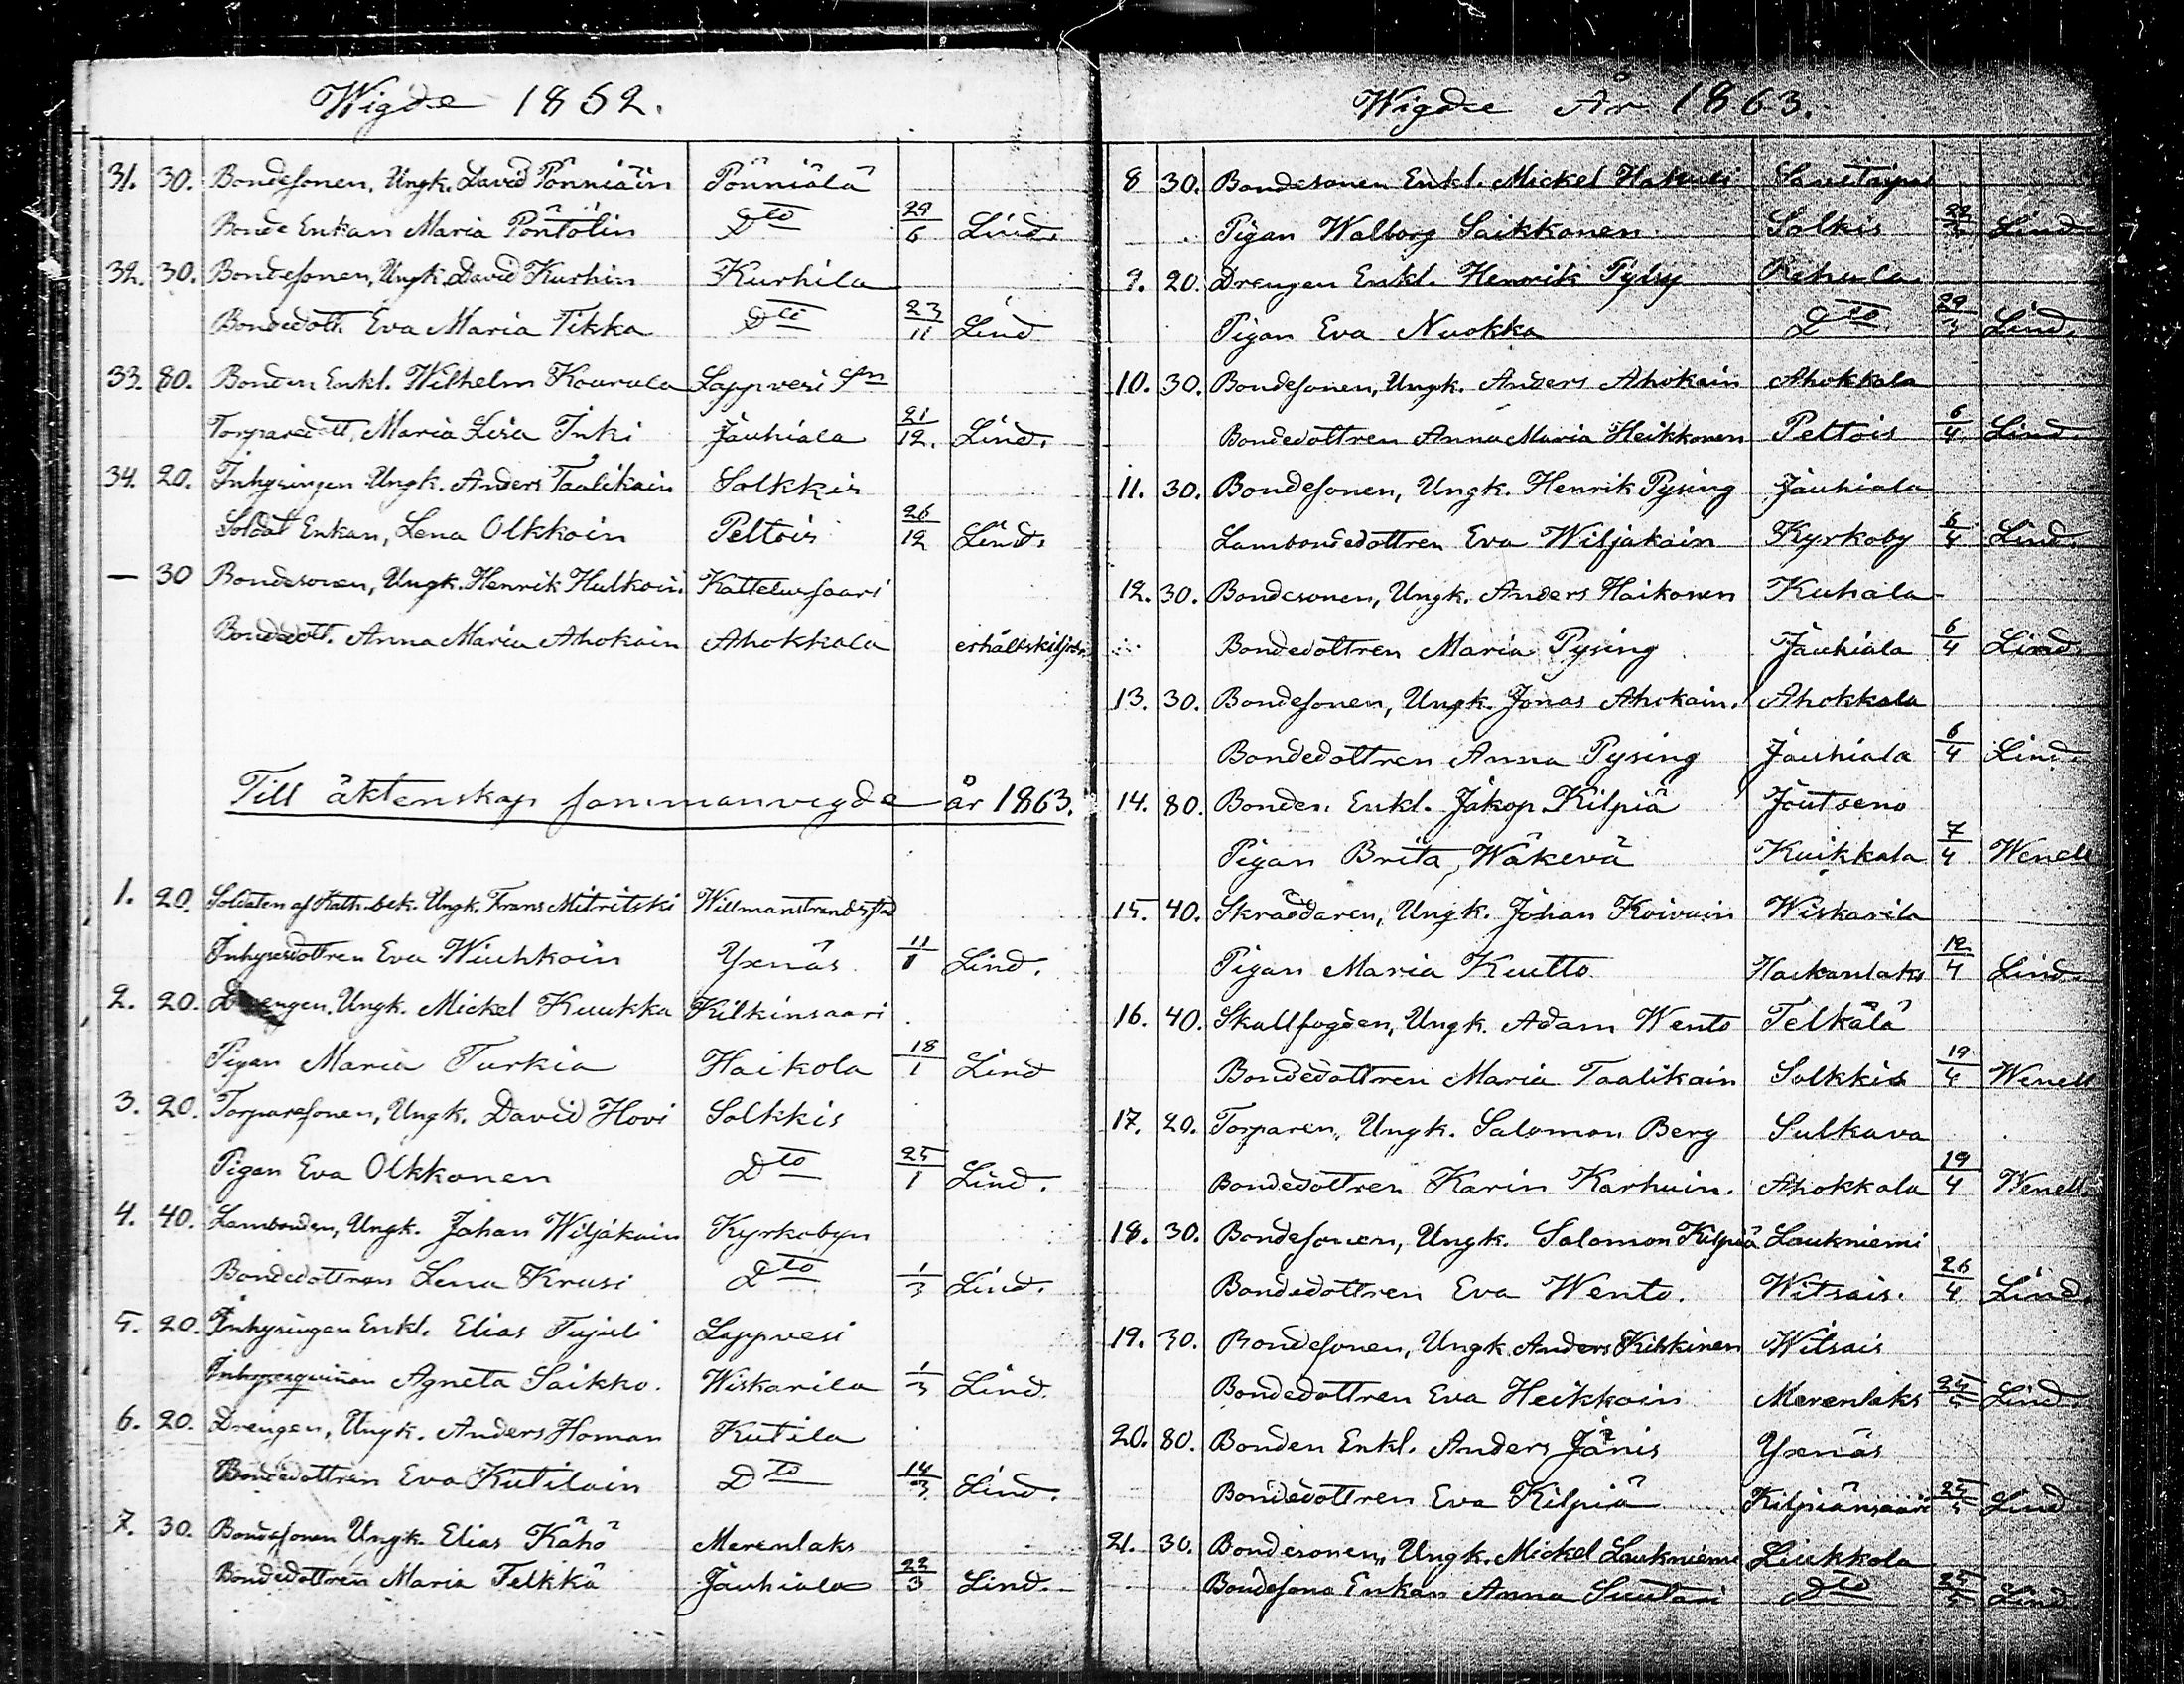 Wigde 1862.
31. 30. Bondesonen, Ungk. David Pönniäin Pönniälä
Bonde Enkan Maria Pöntölin Dto 29/6 Lind.
32. 30. Bondesonen, Ungk. David Kurhin Kurhila
Bondedott. Eva Maria Tikka Dto 23/11 Lind
33. 80. Bonden Enkl. Wilhelm Kourula Lappvesi Sn
Torparedott. Maria Lisa Inki Jauhiala 21/12. Lind.
34. 20. Inhysingen Ungk. Anders Taalikain Solkkis
Soldat Enkan, Lena Olkkoin Peltois 26/12 Lind.
— 30 Bondesonen, Ungk. Henrik Hulkoin Kattelussaari
Bondedott. Anna Maria Ahokain Ahokkala
Till äktenskap sammanvigde år 1863.
1. 20. Soldaten af Kath. bek. Ungk. Frans Mitritski Willmanstrands stad
Inhysesdottren Eva Wiuhkoin Yxnäs 11/1 Lind.
2. 20. Drengen, Ungk. Mickel Kuukka Kilkinsaari
Pigan Maria Turkia Haikola 18/1 Lind
3. 20. Torparesonen, Ungk. David Hovi Solkkis
Pigan Eva Olkkonen Dto 25/1 Lind.
4. 40. Lambonden, Ungk. Johan Wiljakain Kyrkobyn
Bondedottren Lena Krusi Dto 1/3 Lind.
5. 20. Inhysingen Enkl. Elias Tujuli Lappvesi
Inhysesqvinnan Agneta Saikko. Wiskarila 1/3 Lind.
6. 20. Drengen, Ungk. Anders Homan Kutila
Bondedottren Eva Kutilain Dto 14/3 Lind.
7. 30. Bondesonen Ungk. Elias Kähö Merenlaks
Bondedottren Maria Telkkä Jauhiala 22/3 Lind.
Wigde År 1863.
8 30. Bondesonen Enkl. Mickel Savitaipal
Pigan Walborg Saikkonen Solkis Lind
9. 20. Drengen Enkl. Henrik Pylsy Rehula
Pigan Eva Nuokka Dto 29/3 Lind.
10. 30. Bondesonen, Ungk. Anders Ahokain Ahokkala
Bondedottren Anna Maria Heikkonen Peltois 6/4 Lind.
11. 30. Bondesonen, Ungk. Henrik Pysing Jauhiala
Lambondedottren Eva Wiljakain Kyrkoby 6/4 Lind.
12. 30. Bondesonen, Ungk. Anders Haikonen Kuhala
Bondedottren Maria Pysing Jauhiala 6/4 Lind.
13. 30. Bondesonen, Ungk. Jonas Ahokain. Ahokkala
Bondedottren Anna Pysing Jauhiala 6/4 Lind.
14. 80. Bonden. Enkl. Jakop Kilpiä Joutseno
Pigan Brita Wäkevä Kuikkala 7/4 Wenell
15. 40. Skräddaren, Ungk. Johan Koivuin Wiskarila
Pigan Maria Kuitto Haikanlaks 12/4 Lind.
16. 40. Skallfogden, Ungk. Adam Wento Telkälä
Bondedottren Maria Taalikain Solkkis 19/4 Wenell
17. 20. Torparen, Ungk. Salomon Berg Sulkava
Bondedottren Karin Karhuin. Ahokkala 19/4 Wenell.
18. 30. Bondesonen, Ungk. Salomon Kilpiä Laukniemi
Bondedottren Eva Wento. Witsais. 26/4 Lind.
19. 30. Bondesonen, Ungk. Anders Kilskinen Witsais
Bondedottren Eva Heikkoin Merenlaks 25/5 Lind.
20. 80. Bonden Enkl. Anders Jänis Yxnäs
Bondedottren Eva Kilpiä Kilpiänsaari 25/5 Lind
21. 30. Bondesonen, Ungk. Mickel Laukniemi Liukkola
Bondesons Enkan Anna Suutari Dto 25/5 Lind